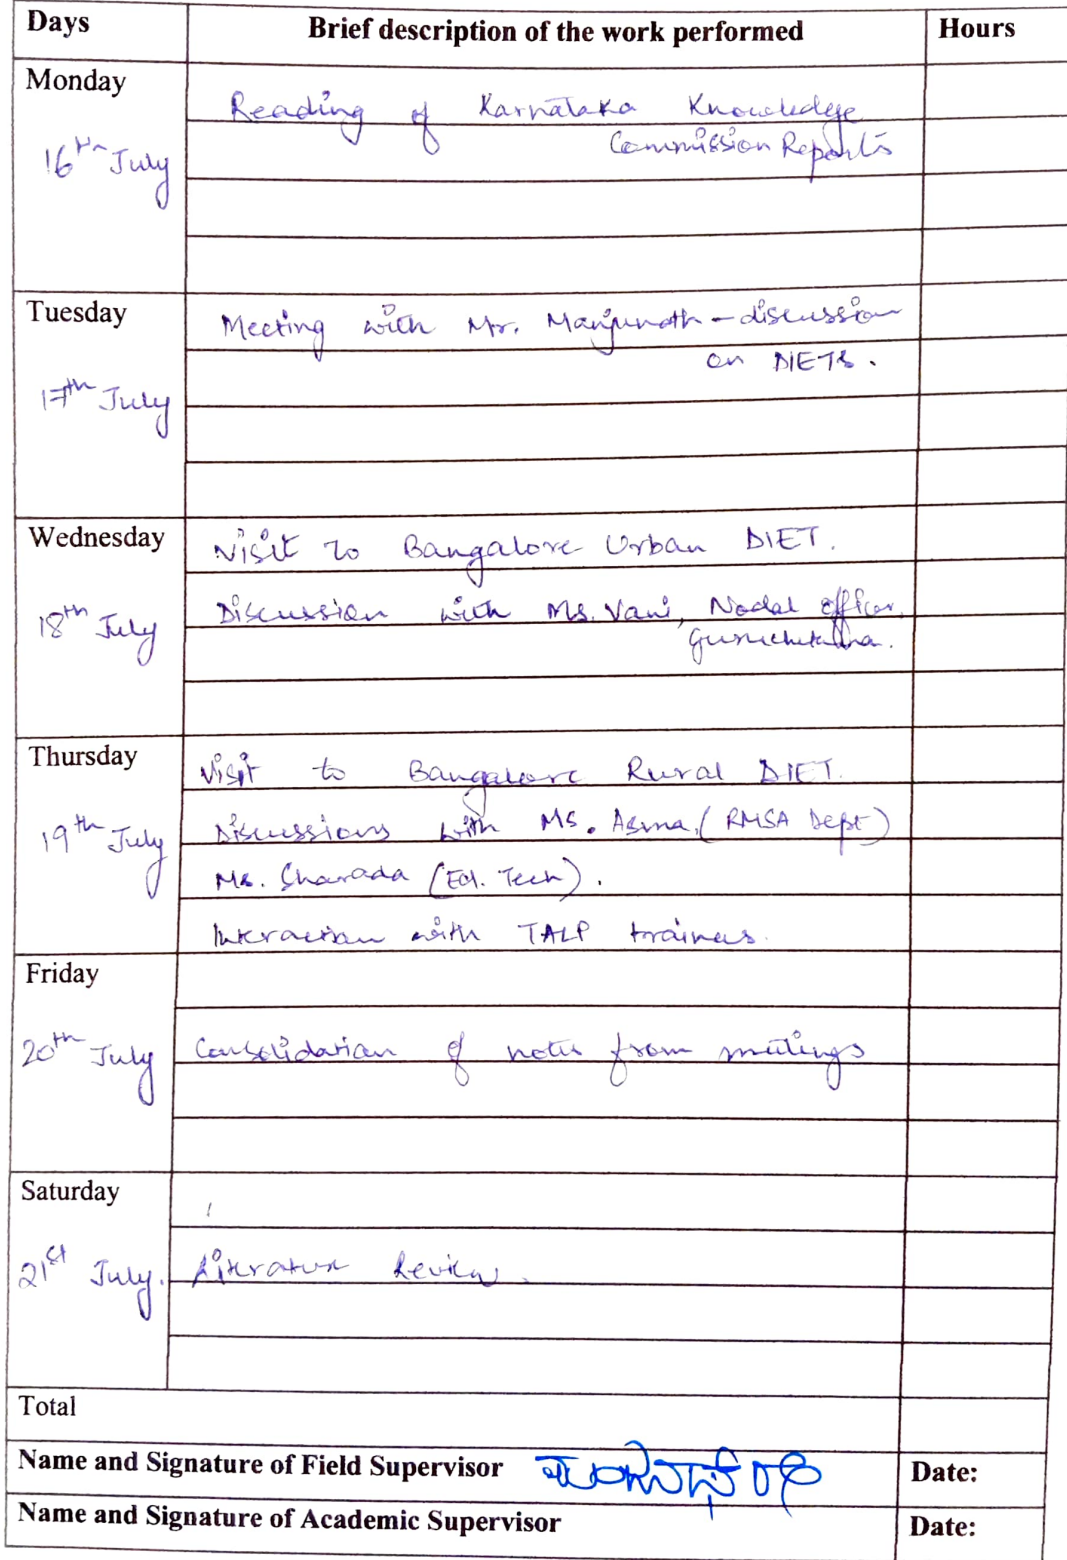 Days Brief description of the work performed Hours
Monday
Reading of Karnataka Knowledge
16th July Commission Reports
Tuesday
Meeting with Mr. Manjunath - discussion
on DIETs.
17th July
Wednesday
Visit to Bangalore Urban DIET.
18th July Discussion with Ms. Vani, Nodal officer,
Guruchetana.
Thursday
Visit to Bangalore Rural DIET.
19th July Discussions with Ms. Asma, (RMSA Dept)
Ms. Sharada (Ed. Tech).
Interaction with TALP trainers.
Friday
20th July Consolidation of notes from meetings
Saturday
21st July. Literature Review.
Total
Name and Signature of Field Supervisor Date:
Name and Signature of Academic Supervisor Date: